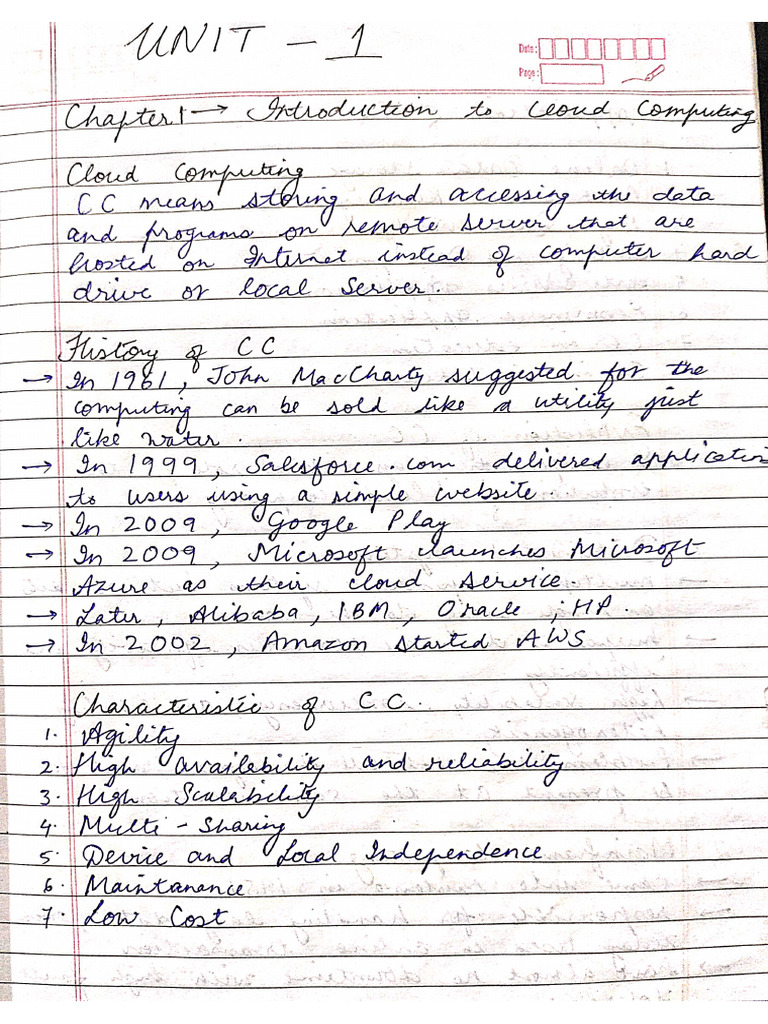 UNIT - 1
Date:
Page:
Chapter 1 → Introduction to Cloud Computing
Cloud Computing
CC means storing and accessing the data
and programs on remote server that are
hosted on Internet instead of computer hard
drive or local server.
History of CC
→ In 1961, John MacCharty suggested for the
computing can be sold like a utility just
like water.
→ In 1999, Salesforce.com delivered application
to users using a simple website.
→ In 2009, Google Play
→ In 2009, Microsoft launches Microsoft
Azure as their cloud service.
→ Later, Alibaba, IBM, Oracle, HP.
→ In 2002, Amazon started AWS
Characteristic of CC.
1. Agility
2. High availability and reliability
3. High Scalability
4. Multi-Sharing
5. Device and Local Independence
6. Maintanance
7. Low Cost